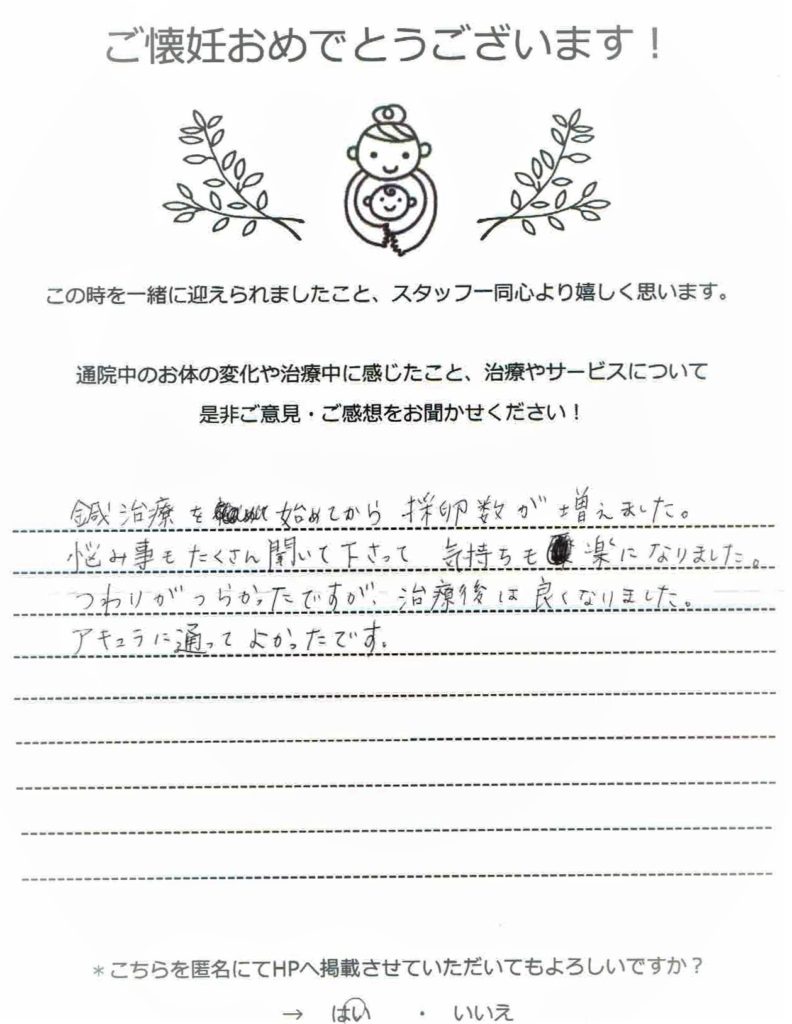 ご懐妊おめでとうございます！
この時を一緒に迎えられましたこと、スタッフ一同心より嬉しく思います。
通院中のお体の変化や治療中に感じたこと、治療やサービスについて
是非ご意見・ご感想をお聞かせください！
鍼治療を 始めてから 採卵数が 増えました。
悩み事もたくさん聞いて下さって 気持ちも 楽になりました。
つわりがつらかったですが、治療後は良くなりました。
アキュラに通ってよかったです。
＊こちらを匿名にてHPへ掲載させていただいてもよろしいですか？
→ はい ・ いいえ